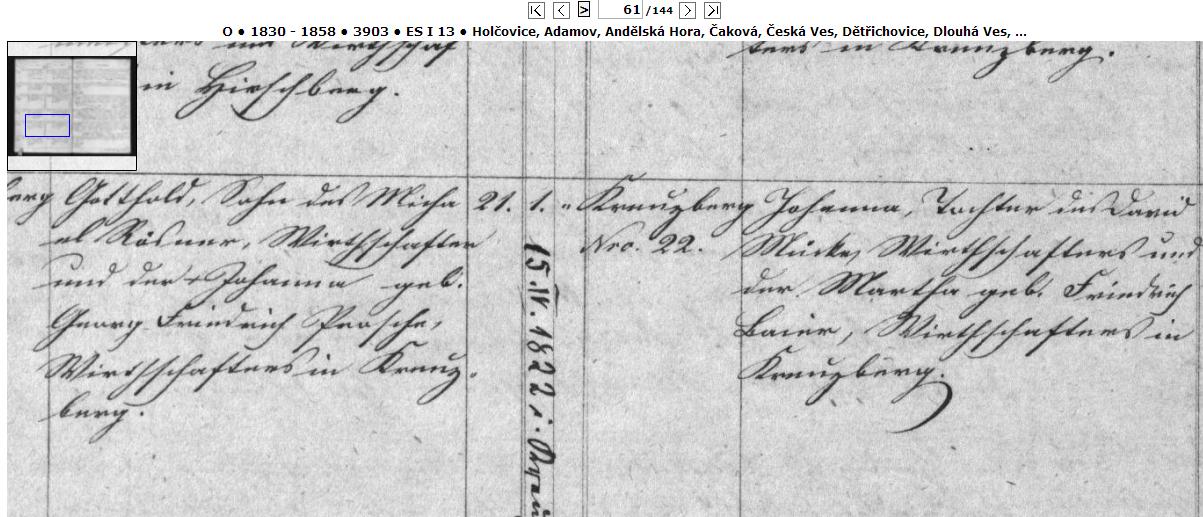 61 /144
O ● 1830 - 1858 ● 3903 ● ES I 13 ● Holčovice, Adamov, Andělská Hora, Čaková, Česká Ves, Dětřichovice, Dlouhá Ves, ...
in Hirschberg.
ters in Kreuzberg.
berg
Gotthold, Sohn des Micha
el Rösner, Wirthschafter
und der Johanna geb.
Georg Friedrich Prosche,
Wirthschafters in Kreuz-
berg.
21. 1. "
15. IV. 1822 i.
Kreuzberg
Nro. 22.
Johanna, Tochter des David
Mücke, Wirthschafters und
der Martha geb. Friedrich
Baier, Wirthschafters in
Kreuzberg.